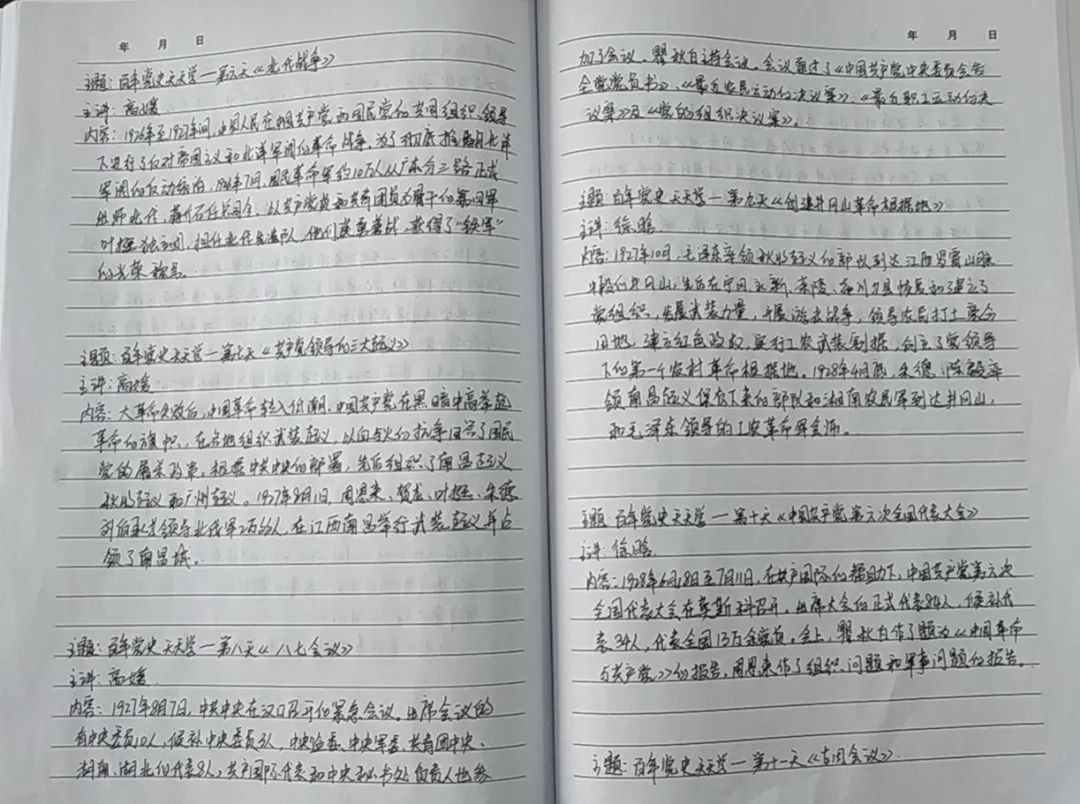 年 月 日
主题：百年党史天天学—第六天《北伐战争》
主讲：高媛
内容：1926年至1927年间，中国人民在中国共产党和国民党的共同组织、领导
下进行了反对帝国主义和北洋军阀的革命战争。为了彻底推翻北洋
军阀的反动统治，1926年7月，国民革命军约10万人从广东分三路正式
出师北伐，蒋介石任总司令，以共产党员和共青团员为骨干的第四军
叶挺独立团，担任北伐先遣队，他们英勇善战，获得了“铁军”
的光荣称号。
主题：百年党史天天学—第七天《共产党领导的三大起义》
主讲：高媛
内容：大革命失败后，中国革命转入低潮，中国共产党在黑暗中高举起
革命的旗帜，在各地组织武装起义，以血与火的抗争回答了国民
党的屠杀政策，根据中共中央的部署，先后组织了南昌起义
秋收起义和广州起义。1927年8月1日，周恩来、贺龙、叶挺、朱德
刘伯承等领导北伐军2万多人，在江西南昌举行武装起义并占
领了南昌城。
主题：百年党史天天学—第八天《八七会议》
主讲：高媛
内容：1927年8月7日，中共中央在汉口召开的紧急会议。出席会议的
有中央委员10人，候补中央委员3人，中央监委、中央军委、共青团中央、
湖南、湖北的代表8人，共产国际代表和中央秘书处负责人也参
年 月 日
加了会议。瞿秋白主持会议。会议通过了《中国共产党中央委员会告
全党党员书》、《最近农民运动的决议案》、《最近职工运动的决
议案》及《党的组织决议案》。
主题：百年党史天天学—第九天《创建井冈山革命根据地》
主讲：徐晗
内容：1927年10月，毛泽东率领秋收起义的部队到达江西罗霄山脉
中段的井冈山，先后在宁冈、永新、茶陵、遂川等县恢复和建立了
党组织，发展武装力量，开展游击战争，领导农民打土豪分
田地，建立红色政权，实行工农武装割据，创立了党领导
下的第一个农村革命根据地。1928年4月底，朱德、陈毅率
领南昌起义保存下来的部队和湘南农民军到达井冈山，
和毛泽东领导的工农革命军会师。
主题：百年党史天天学—第十天《中国共产党第六次全国代表大会》
主讲：徐晗
内容：1928年6月18日至7月11日，在共产国际的帮助下，中国共产党第六次
全国代表大会在莫斯科召开。出席大会的正式代表84人，候补代
表34人，代表全国13万余党员。会上，瞿秋白作了题为《中国革命
与共产党》的报告，周恩来作了组织问题和军事问题的报告。
主题：百年党史天天学—第十一天《古田会议》